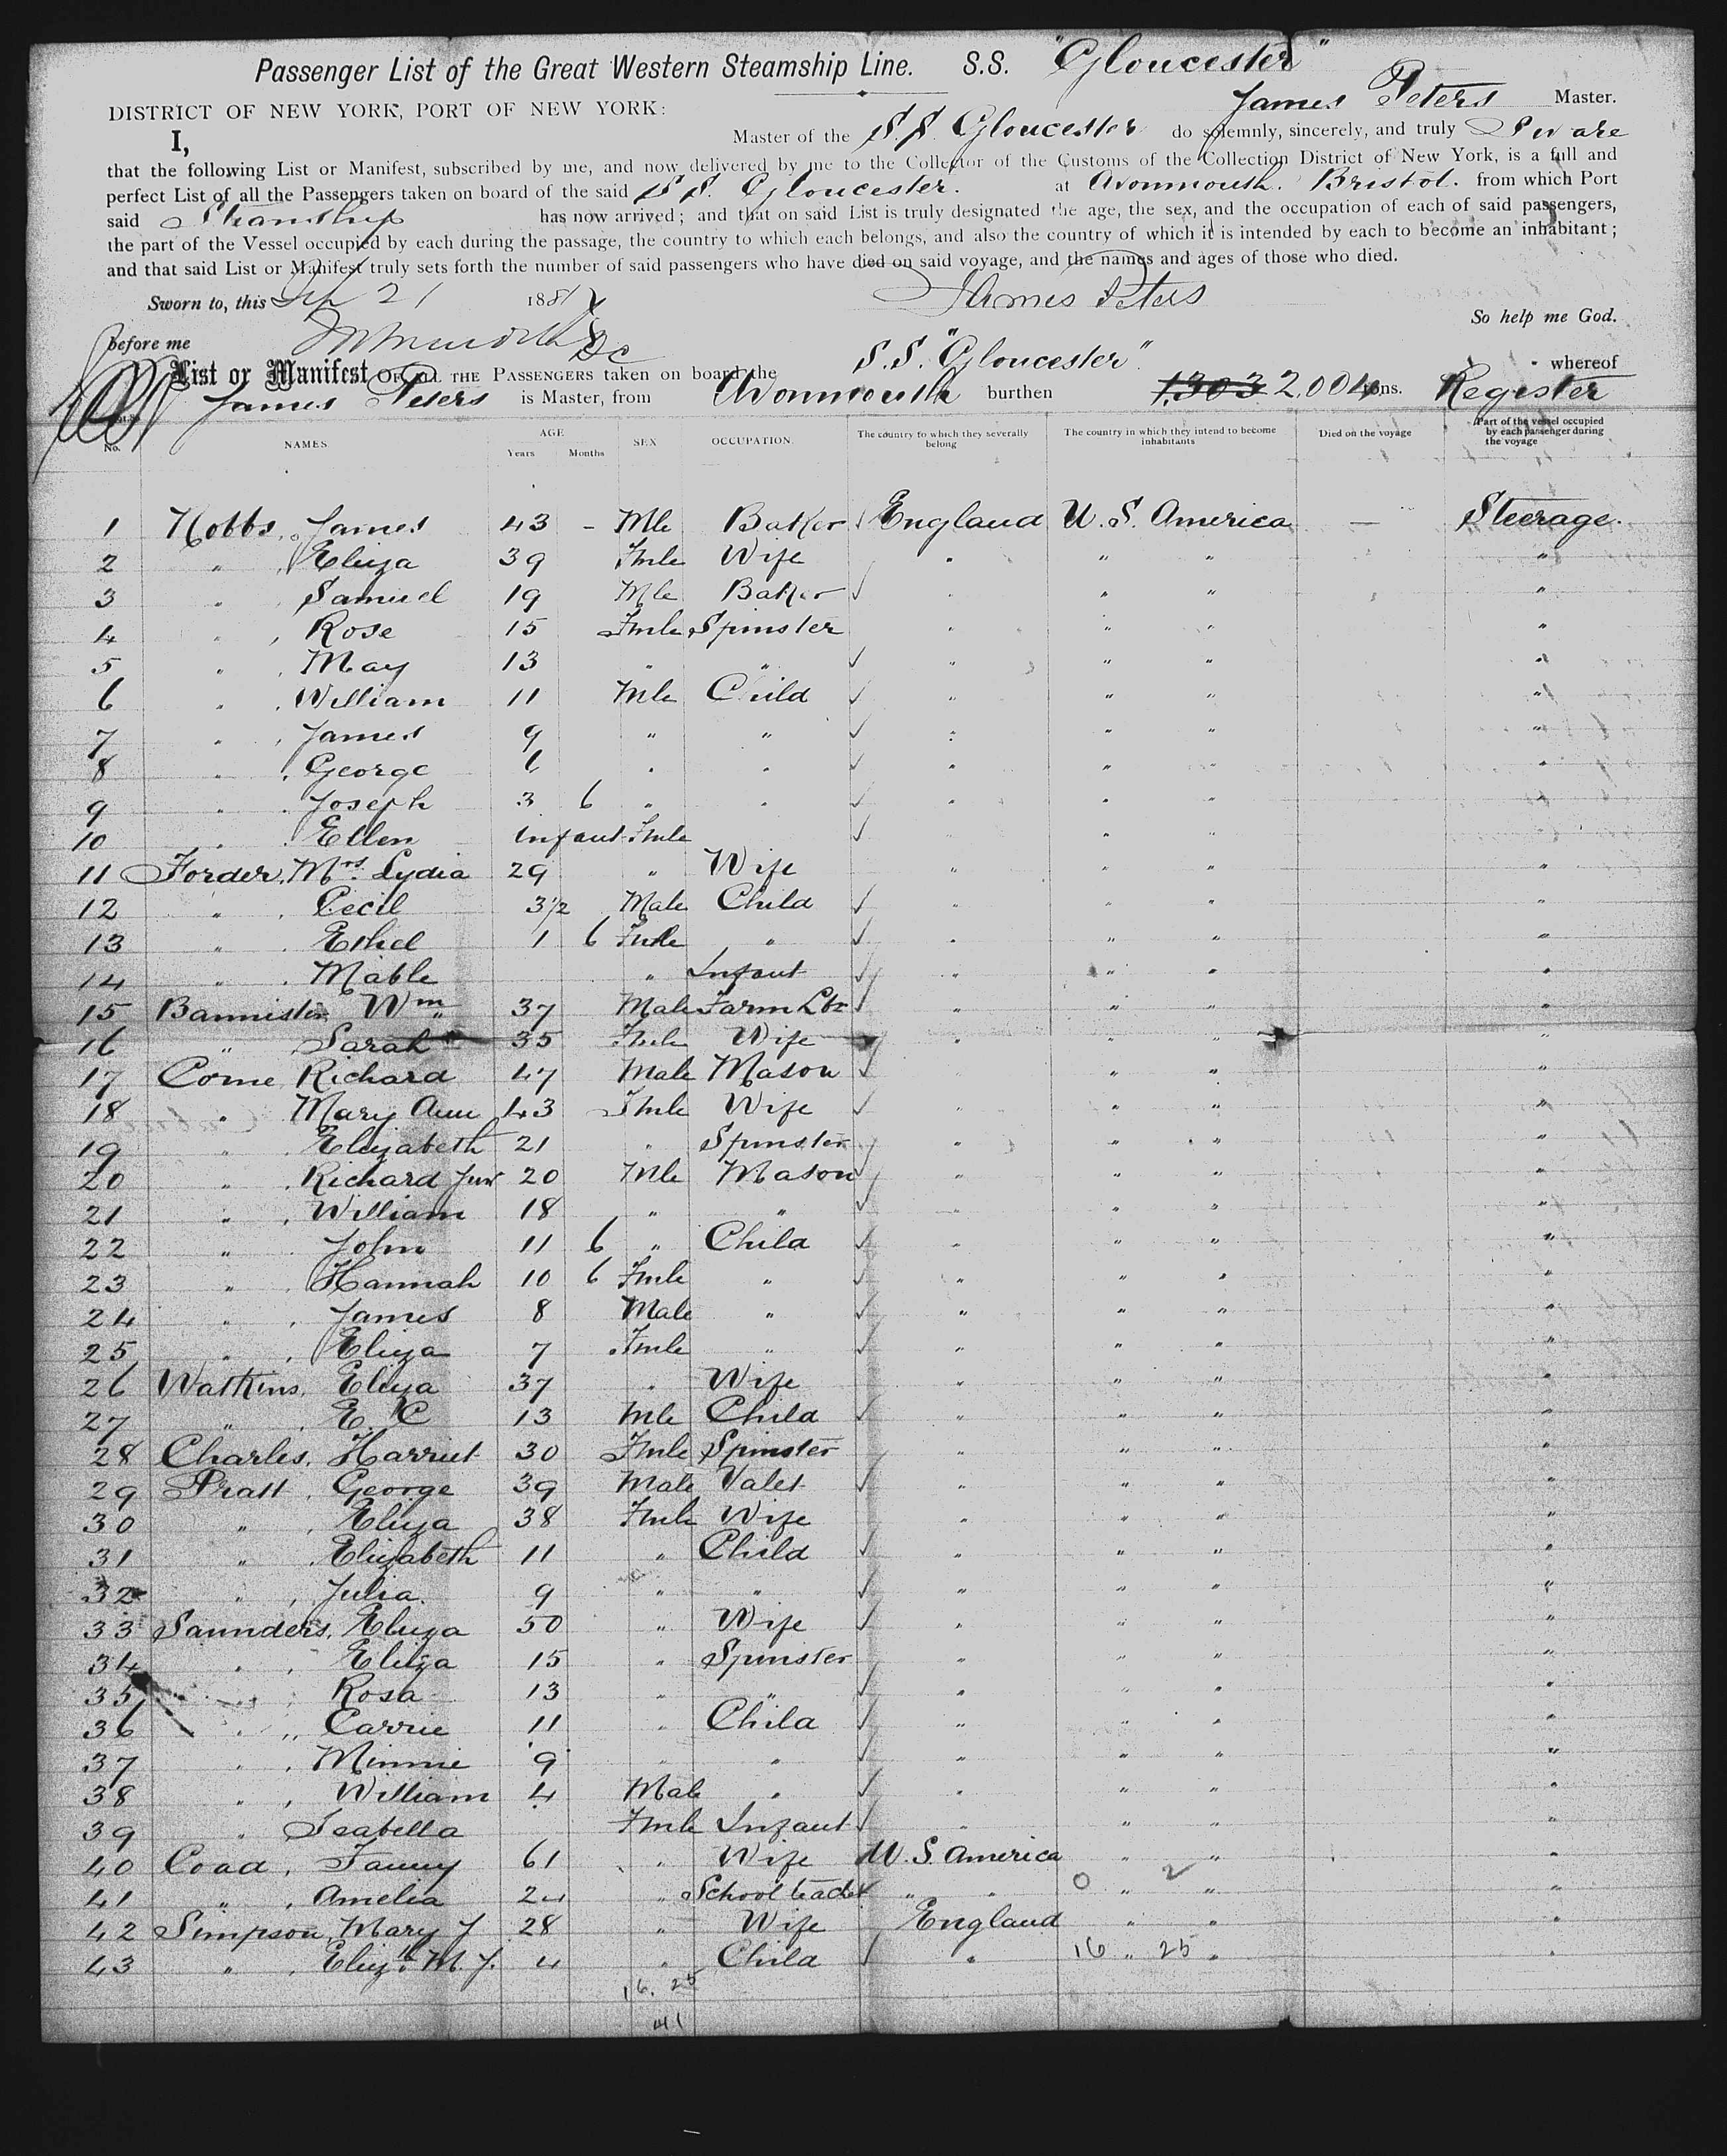 Passenger List of the Great Western Steamship Line. S.S. "Gloucester"
James Peters Master.
DISTRICT OF NEW YORK, PORT OF NEW YORK:
I, Master of the S.S. Gloucester do solemnly, sincerely, and truly Sware
that the following List or Manifest, subscribed by me, and now delivered by me to the Collector of the Customs of the Collection District of New York, is a full and
perfect List of all the Passengers taken on board of the said S.S. Gloucester. at Avonmouth. Bristol. from which Port
said Steamship has now arrived; and that on said List is truly designated the age, the sex, and the occupation of each of said passengers,
the part of the Vessel occupied by each during the passage, the country to which each belongs, and also the country of which it is intended by each to become an inhabitant;
and that said List or Manifest truly sets forth the number of said passengers who have died on said voyage, and the names and ages of those who died.
Sworn to, this 21 1881 James Peters
So help me God.
before me
List or Manifest OF ALL THE PASSENGERS taken on board the S.S. "Gloucester" whereof
James Peters is Master, from Avonmouth burthen 1,303 2,004 tons. Register
No. NAMES AGE Years Months SEX OCCUPATION. The country to which they severally belong The country in which they intend to become inhabitants Died on the voyage Part of the vessel occupied by each passenger during the voyage
1 Hobbs, James 43 – Mle Baker ✓ England U.S. America — Steerage.
2 " , Eliza 39 Fmle Wife " " " "
3 " , Samuel 19 Mle Baker ✓ " " " "
4 " , Rose 15 Fmle Spinster " " " "
5 " , May 13 " " ✓ " " " "
6 " , William 11 Mle Child ✓ " " " "
7 " , James 9 " " ✓ " " " "
8 " , George 6 " " ✓ " " " "
9 " , Joseph 3 6 " " ✓ " " " "
10 " , Ellen Infant Fmle ✓ " " " "
11 Forder, Mrs. Lydia 29 " Wife " " " "
12 " , Cecil 3½ Male Child ✓ " " " "
13 " , Ethel 1 6 Fmle " ✓ " " " "
14 " , Mable " Infant ✓ " " " "
15 Bannister Wm 37 Male Farm Lbr ✓ " " " "
16 " , Sarah 35 Fmle Wife ✓ " " " "
17 Come Richard 47 Male Mason ✓ " " " "
18 " Mary Ann 43 Fmle Wife ✓ " " " "
19 " , Elizabeth 21 " Spinster ✓ " " " "
20 " , Richard Junr 20 Mle Mason ✓ " " " "
21 " , William 18 " " ✓ " " " "
22 " , John 11 6 " Child ✓ " " " "
23 " , Hannah 10 6 Fmle " ✓ " " " "
24 " , James 8 Male " ✓ " " " "
25 " , Eliza 7 Fmle " ✓ " " " "
26 Watkins, Eliza 37 " Wife " " " "
27 " , E. C 13 Mle Child ✓ " " " "
28 Charles, Harriet 30 Fmle Spinster " " " "
29 Pratt, George 39 Male Valet ✓ " " " "
30 " , Eliza 38 Fmle Wife " " " "
31 " , Elizabeth 11 " Child ✓ " " " "
32 " , Julia 9 " " ✓ " " " "
33 Saunders, Eliza 50 " Wife ✓ " " " "
34 " , Eliza 15 " Spinster " " " "
35 " , Rosa 13 " " ✓ " " " "
36 " , Carrie 11 " Child ✓ " " " "
37 " , Minnie 9 " " ✓ " " " "
38 " , William 4 Male " ✓ " " " "
39 " Isabella Fmle Infant ✓ " " " "
40 Coad, Fanny 61 " Wife U.S. America " " "
41 " , Amelia 24 " School teacher " " 0 " 2 " "
42 Simpson, Mary J 28 " Wife England " " "
43 " , Elizth M. J. 4 " Child ✓ " 16 " 25 " "
16. 25
41